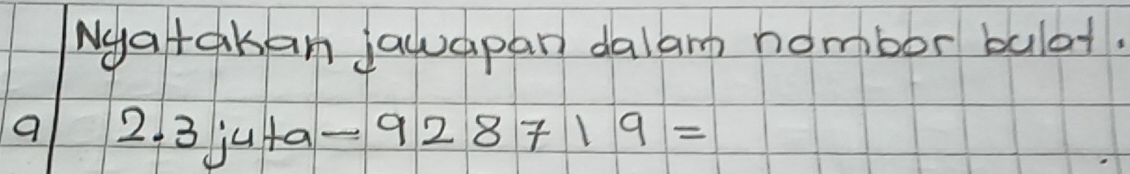 Nyatakan jawapan dalam nombor bulat.
a 2.3 juta - 928719 =